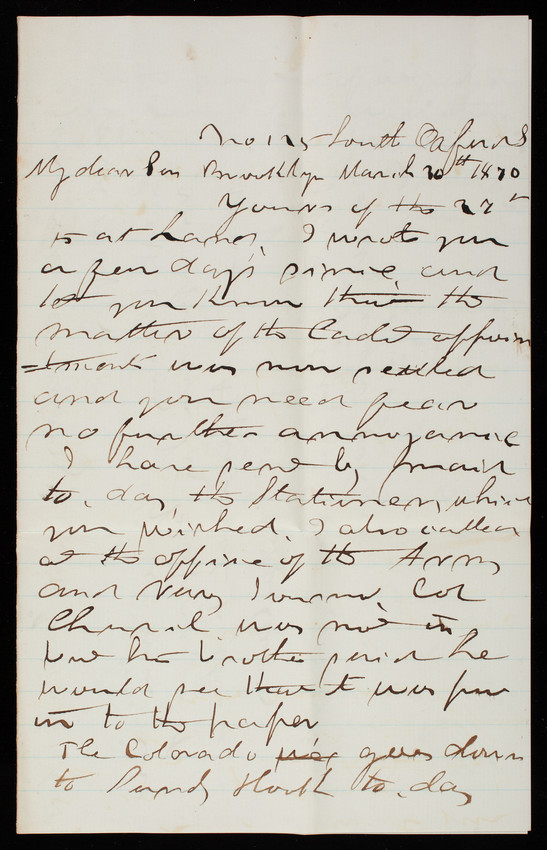 No 125 South Oxford S
My dear Son Brooklyn March 30th 1870
Yours of the 27th
is at hand, I wrote you
a few days since and
let you know that the
matter of the Cadet appoin
=tment was now settled
and you need fear
no further annoyance
I have send by mail
to, day the Stationery which
you wished, I also called
at the office of the Army
and Navy Journal, Col
Church was not in
but his brother said he
would see that it was put
in to the paper
The Colorado goes down
to Sandy Hook to, day